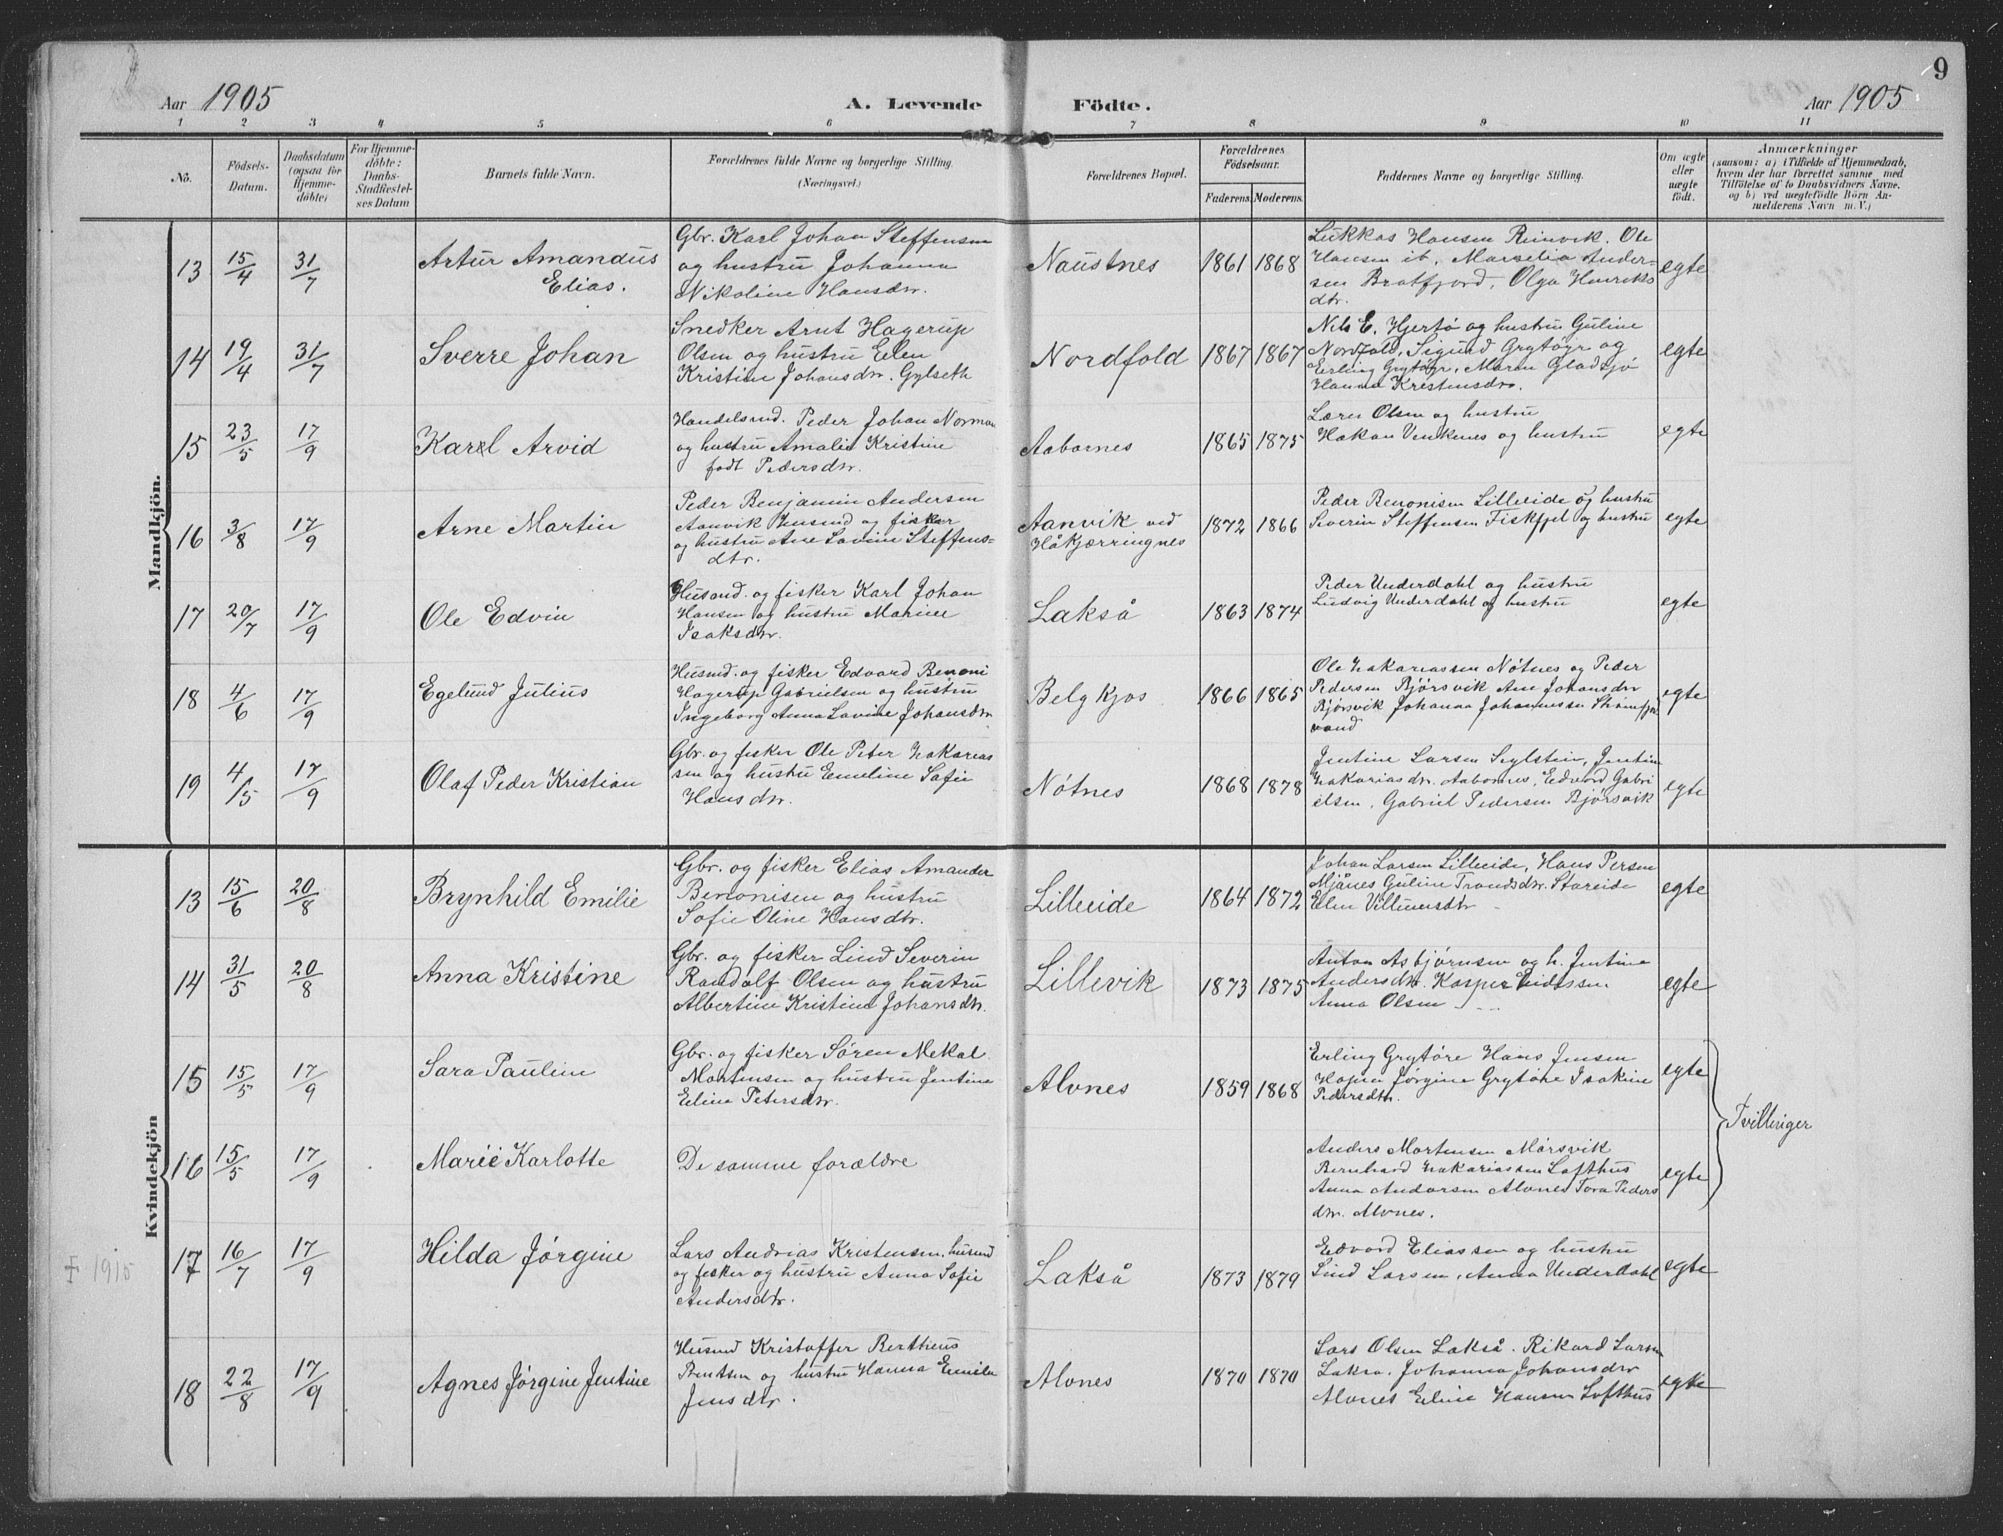 9
Aar 1905
A. Levende
Födte.
Aar 1905
1 2 3 4 5 6 7 8 9 10 11
No.
Födsels-
Datum.
Daabsdatum
(ogsaa for
Hjemme-
döbte)
For Hjemme-
döbte:
Daabs-
Stadfæstel-
ses Datum
Barnets fulde Navn.
Forældrenes fulde Navne og borgerlige Stilling.
(Næringsvei.)
Forældrenes Bopæl.
Forældrenes
Födselsaar.
Faderens. Moderens.
Faddernes Navne og borgerlige Stilling.
Om ægte
eller
uægte
födt.
Anmærkninger
(saasom: a) i Tilfælde af Hjemmedaab,
hvem der har forrettet samme med
Tilföielse af to Daabsvidners Navne.
og b) ved uægtefödte Börn An-
melderens Navn m. V.)
Mandkjön.
13 15/4 31/7
Artur Amandus
Elias.
Gbr. Karl Johan Steffensen
og hustru Johanna
Nikoline Hansdtr.
Naustnes
1861 1868
Lukkas Hansen Reinvik. Ole
Hansen ib, Marselia Ander-
sen Bratfjord, Olga Henriks
dtr.
egte
14 19/4 31/7
Sverre Johan
Snedker Arnt Hagerup
Olsen og hustru Elen
Kristine Johansdtr. Gylseth
Nordfold
1867 1867
Nils E. Hjertø og hustru Guline
Nordfold, Sigurd Grytøyr og
Erling Grytøyr, Maren Gladsjø
Hanna Kristensdtr.
egte
15 23/5 17/9
Karl Arvid
Handelsmd. Peder Johan Norman
og hustru Amalie Kristine
født Pedersdtr.
Aabornes
1865 1875
Lærer Olsen og hustru
Hakan Venkenes og hustru
egte
16 3/8 17/9
Arne Martin
Peder Benjamin Andersen
Aanvik husmd og fisker
og hustru Ane Lovine Steffens-
dtr.
Aanvik ved
Håkjærringnes
1872 1866
Peder Benonisen Lilleeide og hustru
Severin Steffensen Fiskfjel og hustru
egte
17 20/7 17/9
Ole Edvin
Husmd. og fisker Karl Johan
Hansen og hustru Marine
Isaksdtr.
Lakså
1863 1874
Peder Underdahl og hustru
Ludvig Underdahl og hustru
egte
18 4/6 17/9
Egelund Julius
Husmd. og fisker Edvard Benoni
Hagerup Gabrielsen og hustru
Ingeborg Anna Lovine Johansdtr
Belgkjos
1866 1865
Ole Zakariassen Nøtnes og Peder
Pedersen Bjørsvik Ane Johansdtr
Bjørsvik Johanna Johannessen
vand
egte
19 4/5 17/9
Olaf Peder Kristian
Gbr. og fisker Ole Peter Zakarias
sen og hustru Emeline Sofie
Hansdtr.
Nøtnes
1868 1878
Jentine Larsen Sylstein, Jentine
Zakariasdtr. Aabornes, Edvard Gabri
elsen, Gabriel Pedersen Bjørsvik
egte
Kvindekjön
13 15/6 20/8
Brynhild Emilie
Gbr. og fisker Elias Amander
Benonisen og hustru
Sofie Oline Hansdtr.
Lilleeide
1864 1872
Johan Larsen Lilleeide, Hans Persen
Mjånes Guline Trondsdtr. Storeide
Elen Villumsdtr
egte
14 31/5 20/8
Anna Kristine
Gbr. og fisker Lind Severin
Randolf Olsen og hustru
Albertine Kristine Johansdtr.
Lillevik
1873 1875
Anton Asbjørnsen og h. Jentine
Andersdtr. Kasper Eidissen
Anna Olsen
egte
15 15/5 17/9
Sara Pauline
Gbr. og fisker Søren Mekal
Mortensen og hustru Jentine
Eline Petersdtr.
Alvnes
1859 1868
Erling Grytøre Hans Jensen
Hopen Jørgine Grytøre Isakine
Pedersdtr.
egte
Tvillinger
16 15/5 17/9
Marie Karlotte
De samme forældre
Anders Mortensen Mørsvik
Bernhard Zakariassen Lofthus
Anna Andersen Alvnes Tora Peders
dtr. Alvnes.
egte
17 16/7 17/9
Hilda Jørgine
Lars Andrias Kristensen, husmd
og fisker og hustru Anna Sofie
Andersdtr.
Lakså
1873 1879
Edvard Eliassen og hustru
Lind Larsen, Anna Underdahl
egte
1915
18 22/8 17/9
Agnes Jørgine Jentine
Husmd Kristoffer Bertheus
Bentsen og hustru Hanna Emilie
Jensdtr.
Alvnes
1870 1870
Lars Olsen Lakså. Rikard Larsen
Laksa. Johanna Johansdtr
Alvnes Eline Hansen Lofthus
egte